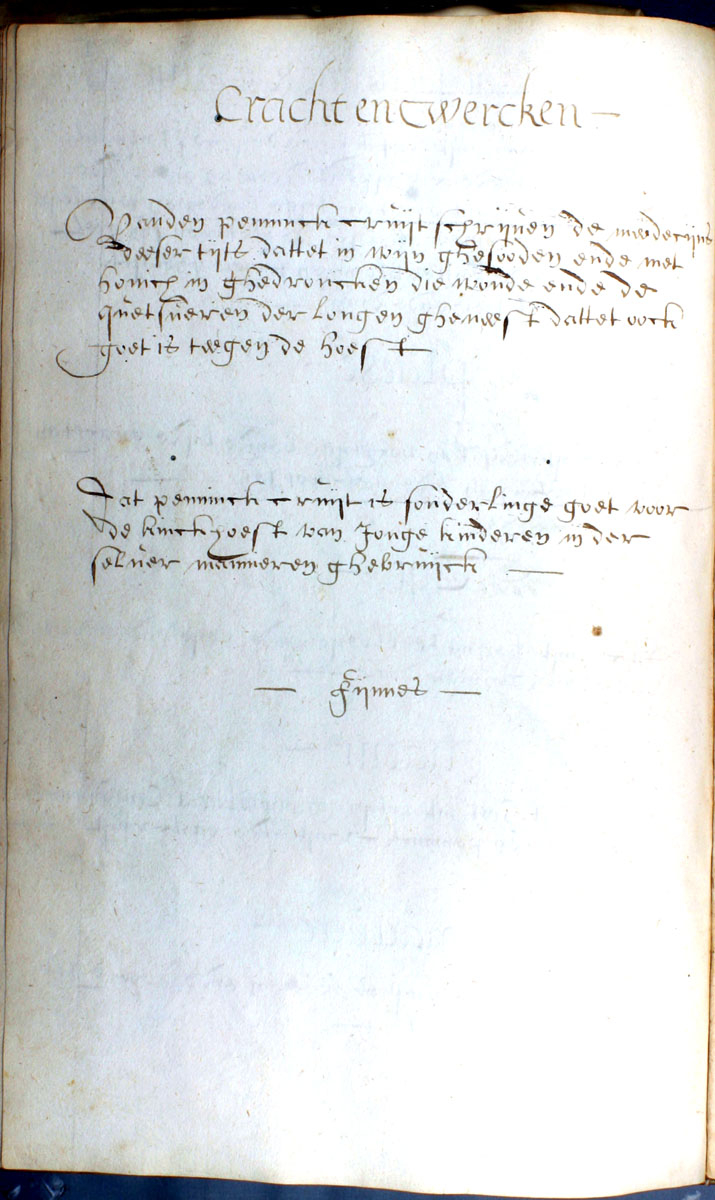 Cracht en Twercken
Vanden penninck cruijt schrijven de medecijns
deeser tijts dattet in wijn ghesooden ende met
honich in ghedroncken die wonde ende de
quetsueren der longen gheneest dattet oock
goet is teegen de hoest
Dat penninck cruijt is sonderlinge goet voor
de kinckhoest van Jonge kinderen in der
selver manieren ghebruijckt
Fijnnes